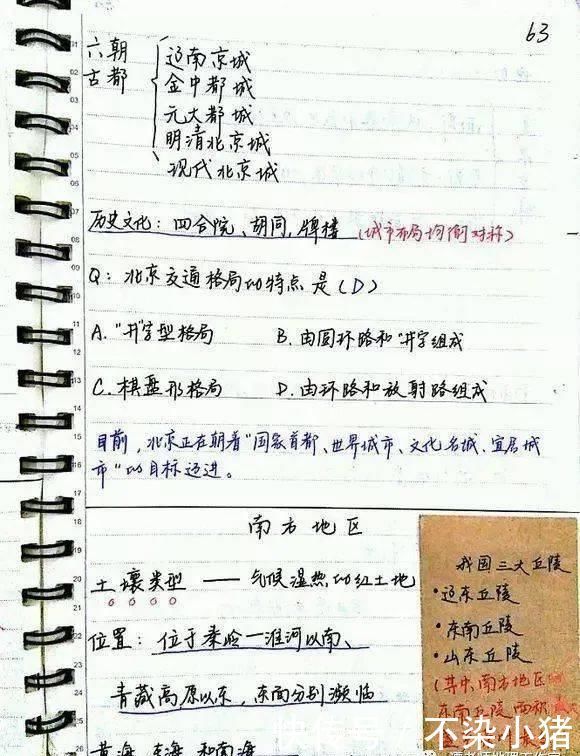 63
六朝
古都
辽南京城
金中都城
元大都城
明清北京城
现代北京城
历史文化：四合院、胡同，牌楼（城市布局均衡对称）
Q：北京交通格局的特点是（D）
A. "井"字型格局 B. 由圆环路和"井"字组成
C. 棋盘形格局 D. 由环路和放射路组成
目前，北京正在朝着"国家首都、世界城市、文化名城、宜居城
市"的目标迈进。
南方地区
土壤类型 —— 气候湿热的红土地
位置：位于秦岭—淮河以南、
青藏高原以东，东面分别濒临
黄海 东海 和南海
我国三大丘陵
·辽东丘陵
·东南丘陵
·山东丘陵
（其中，南方地区
东南丘陵 西部
不染小猪